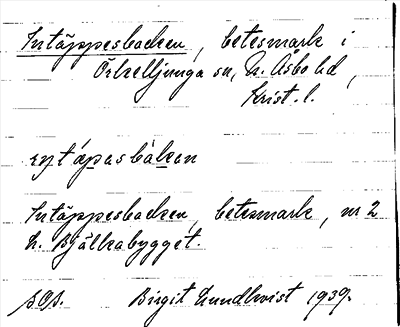 Intäppesbacken, betesmark i
Örkelljunga sn, N. Åsbo hd,
Krist. l.
Intäppesbacken, betesmark, nr 2
N. Bjälkabygget.
Birgit Lundkvist 1939.